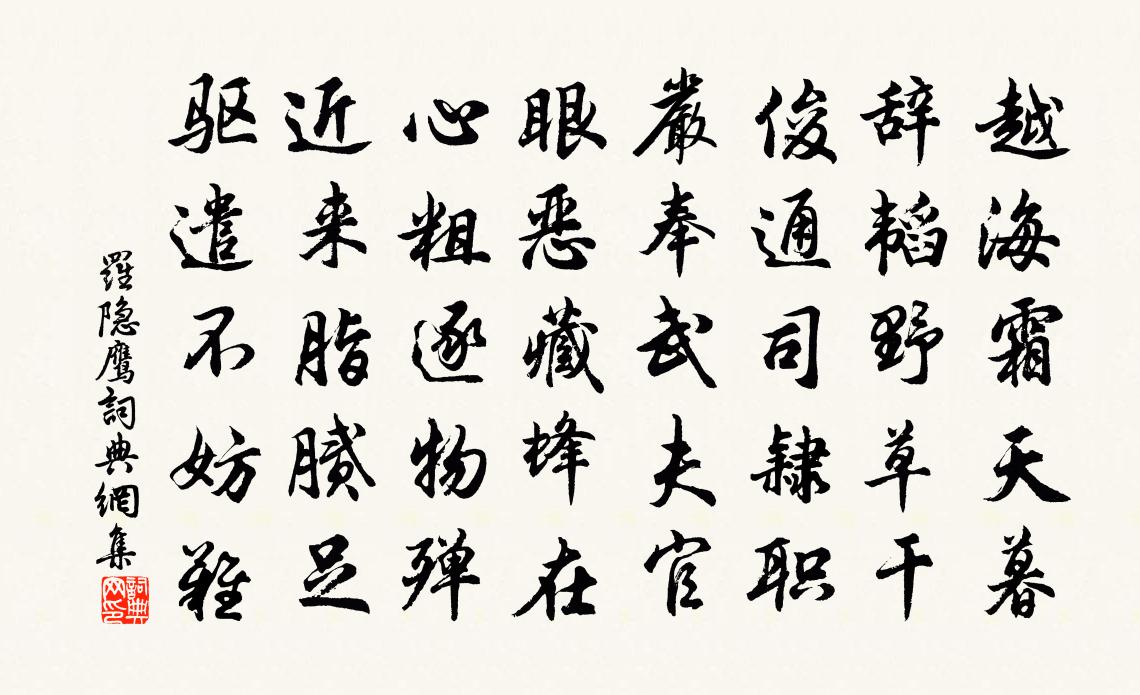 越海霜天暮
辞韬野草干
俊通司隷职
嚴奉武夫官
眼恶藏蜂在
心粗逐物殚
近来脂腻足
驱遣不妨難
羅隐鹰詞典網集
詞典网印